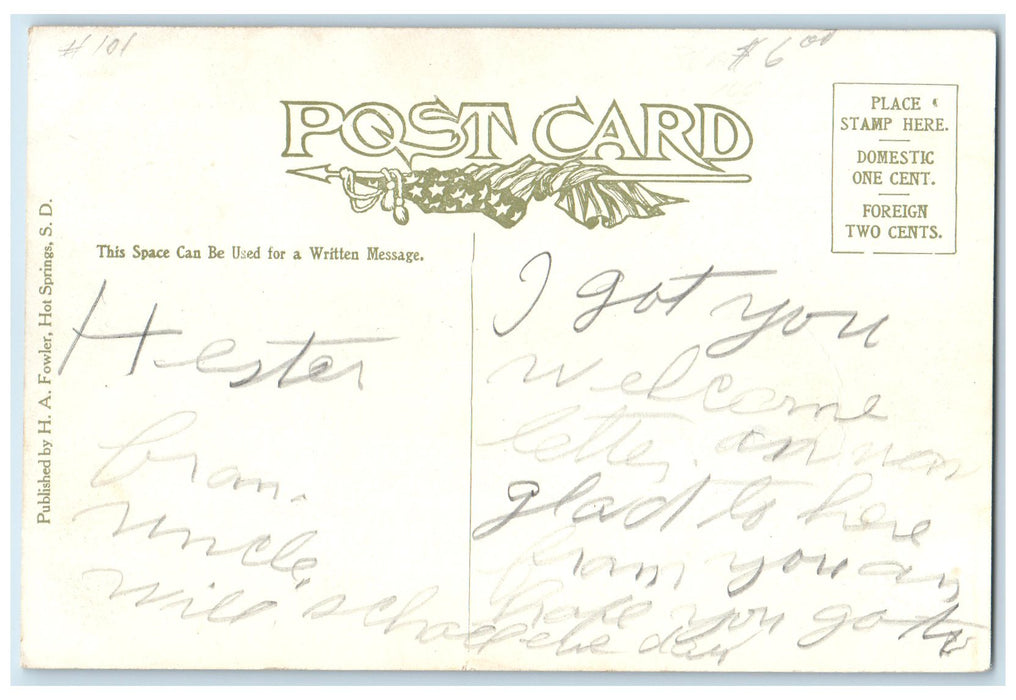 # 101
$6.00
POST CARD
PLACE
STAMP HERE.
DOMESTIC
ONE CENT.
FOREIGN
TWO CENTS.
Published by H. A. Fowler, Hot Springs, S. D.
This Space Can Be Used for a Written Message.
Hester
fram.
uncle.
Will.
I got you
welcome
letter. an
glad to here
fram you an
hope you go to
school eche day